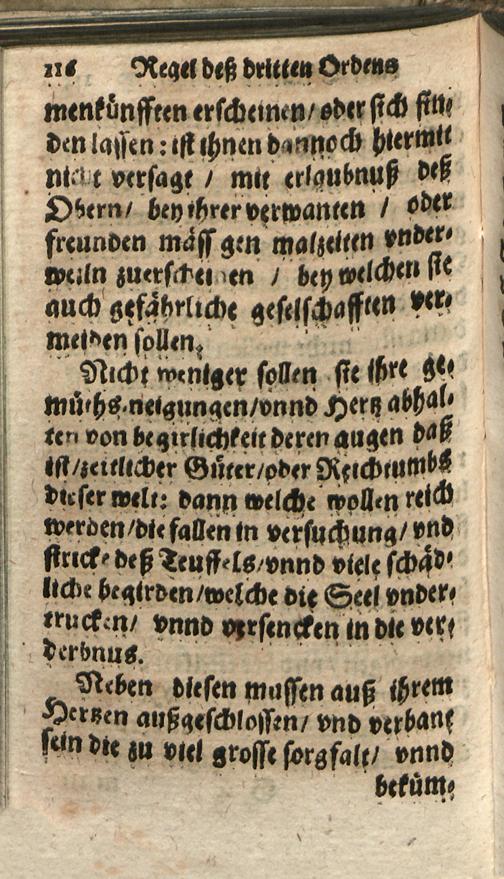 116 Regel deß dritten Ordens
menkünfften erscheinen/ oder sich fin-
den lassen: ist ihnen dannoch hiermit
nicht versagt / mit erlaubnuß deß
Obern/ bey ihrer verwanten / oder
freunden mässigen malzeiten vnder-
weiln zuerscheinen / bey welchen sie
auch gefährliche geselschafften ver-
meiden sollen.
Nicht weniger sollen sie ihre ge-
müths-neigungen/vnnd Hertz abhal-
ten von begirlichkeit deren augen daß
ist/zeitlicher Güter/oder Reichtumbs
dieser welt: dann welche wollen reich
werden/die fallen in versuchung/ vnd
stricke deß Teuffels/vnnd viele schäd-
liche begirden/welche die Seel vnder-
trucken/ vnnd versencken in die ver-
derbnus.
Neben diesen mussen auß ihrem
Hertzen außgeschlossen/ vnd verbant
sein die zu viel grosse sorgfalt/ vnnd
beküm-